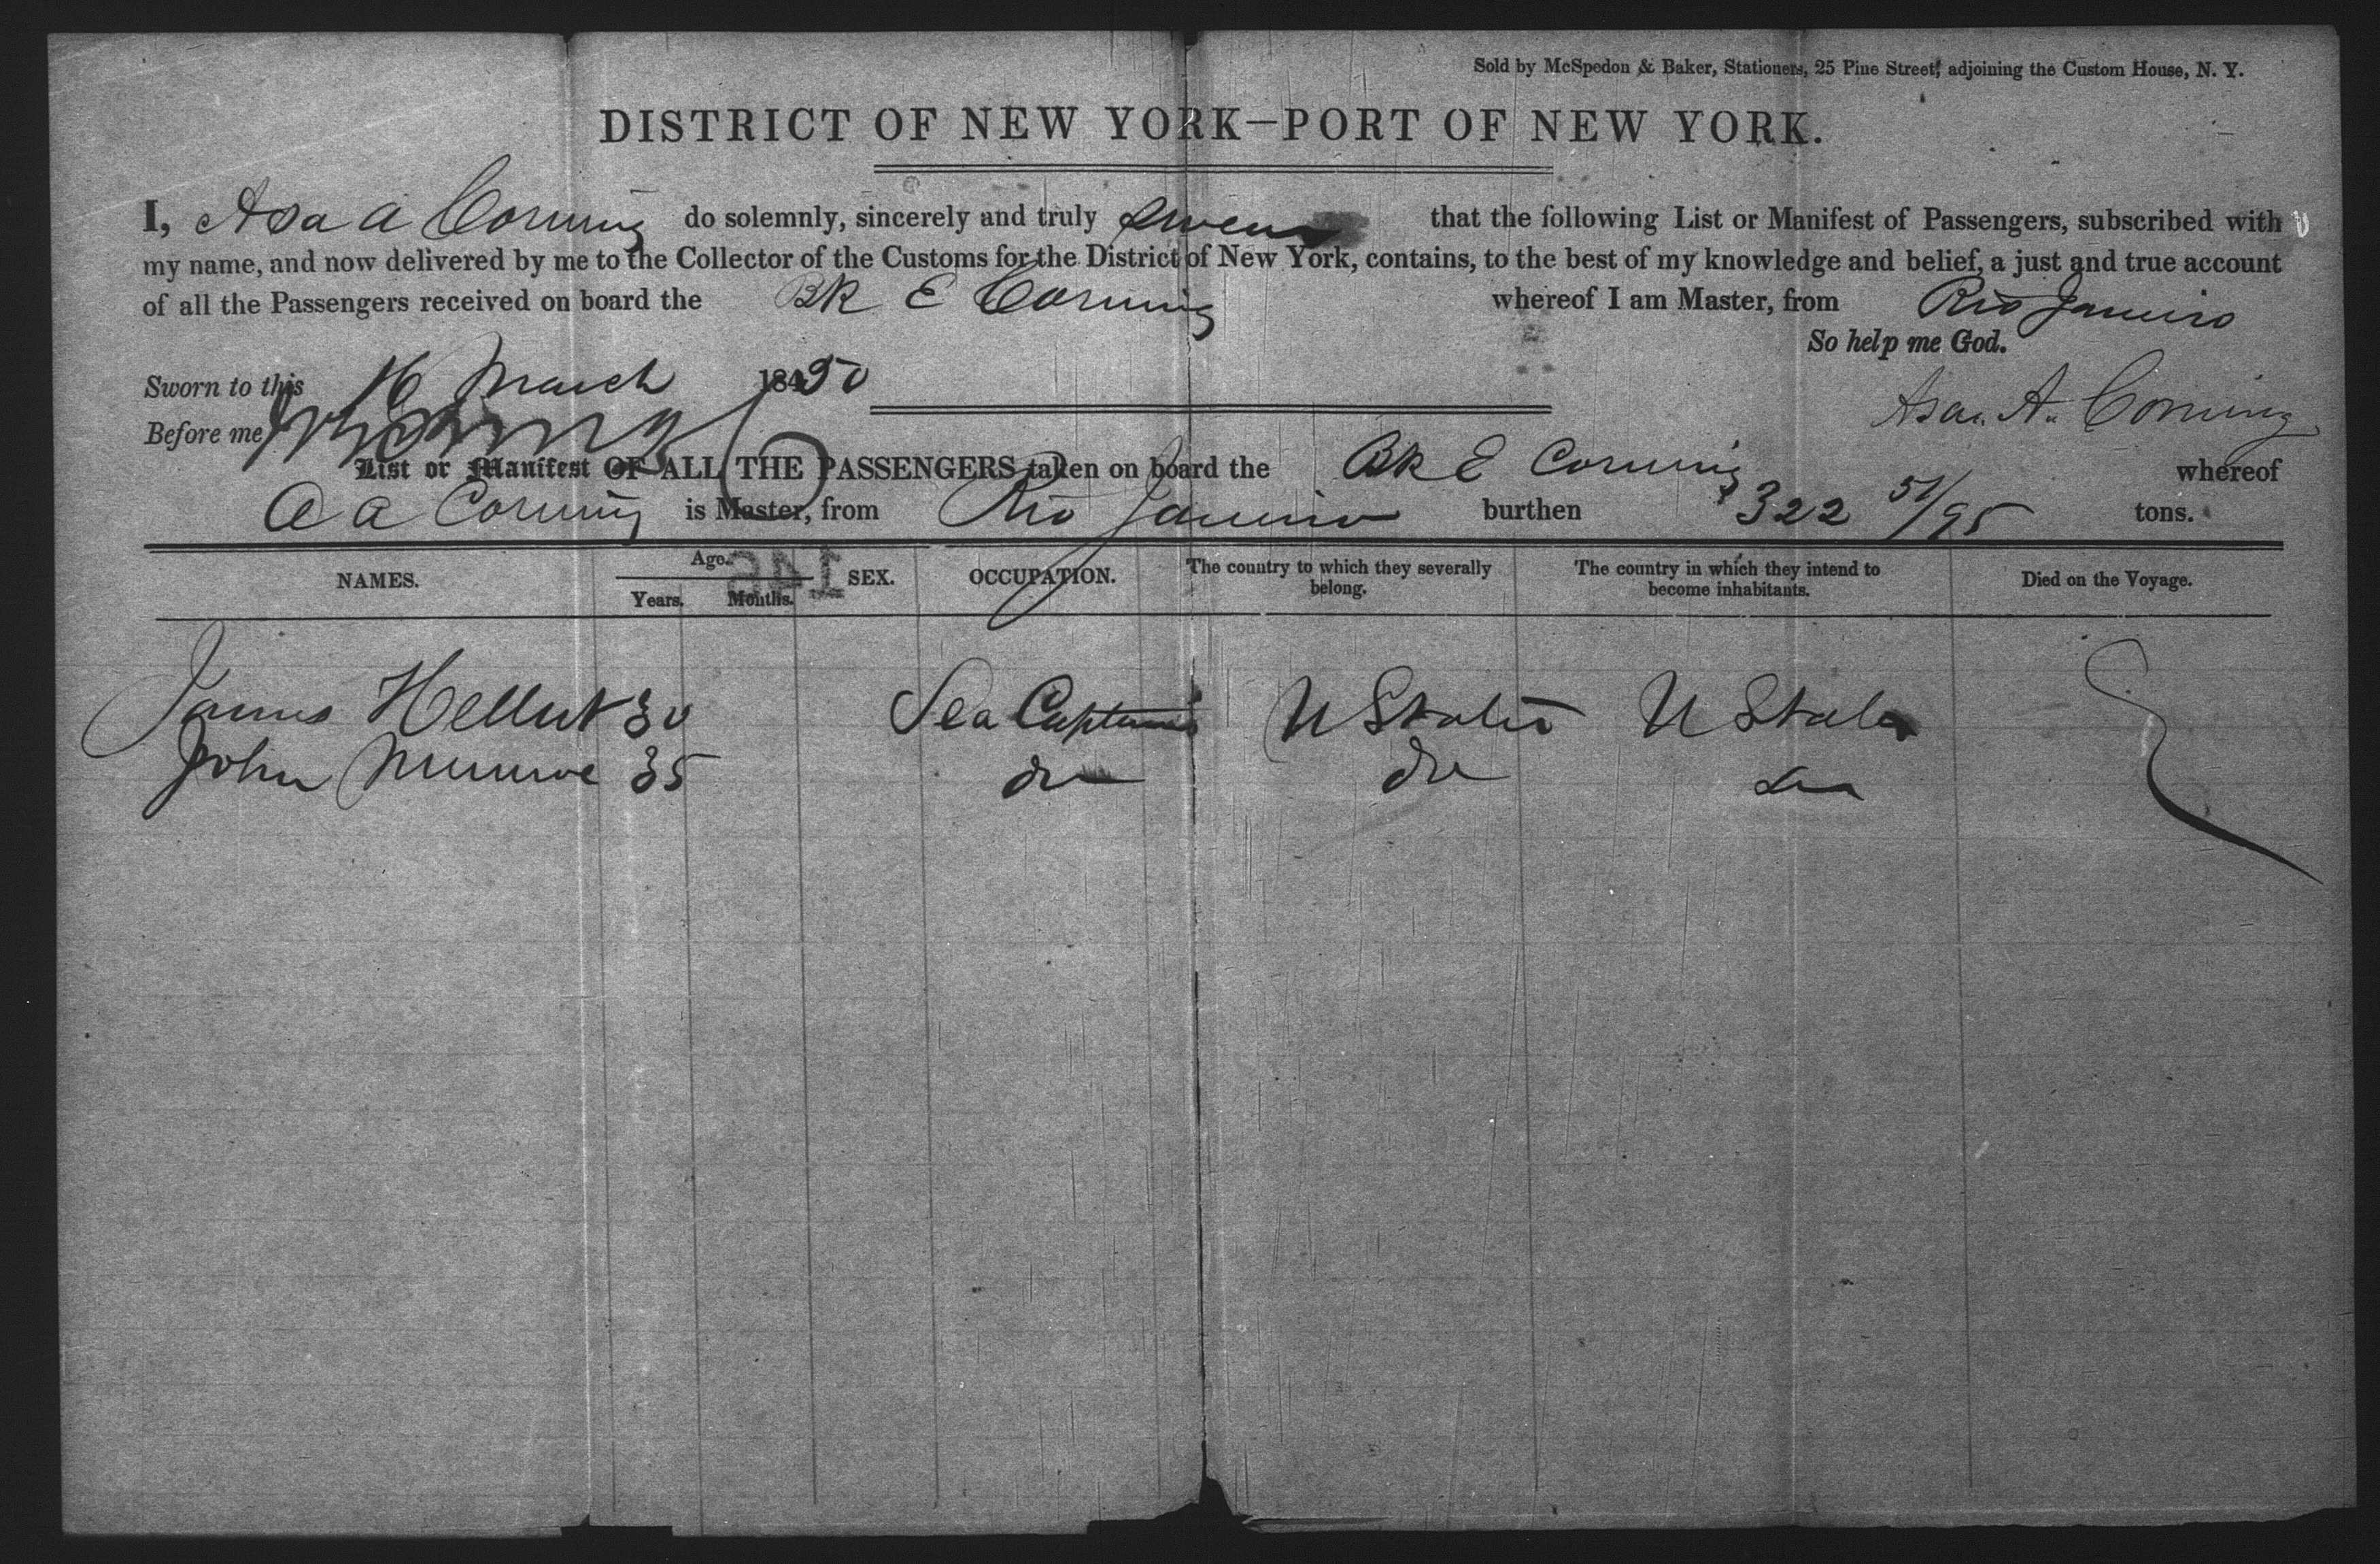 Sold by McSpedon & Baker, Stationers, 25 Pine Street, adjoining the Custom House, N. Y.
DISTRICT OF NEW YORK—PORT OF NEW YORK.
I, Asa A Corning do solemnly, sincerely and truly swear that the following List or Manifest of Passengers, subscribed with
my name, and now delivered by me to the Collector of the Customs for the District of New York, contains, to the best of my knowledge and belief, a just and true account
of all the Passengers received on board the Bk E Corning whereof I am Master, from Rio Janeiro
So help me God.
Sworn to this 16 March 1850
Asa. A. Corning
Before me
List or Manifest OF ALL THE PASSENGERS taken on board the Bk E Corning whereof
A A Corning is Master, from Rio Janeiro burthen 322 51/95 tons.
NAMES. Age. Years. Months. SEX. OCCUPATION. The country to which they severally belong. The country in which they intend to become inhabitants. Died on the Voyage.
146
James 30 Sea Captain U States U States
John Munroe 35 do do do